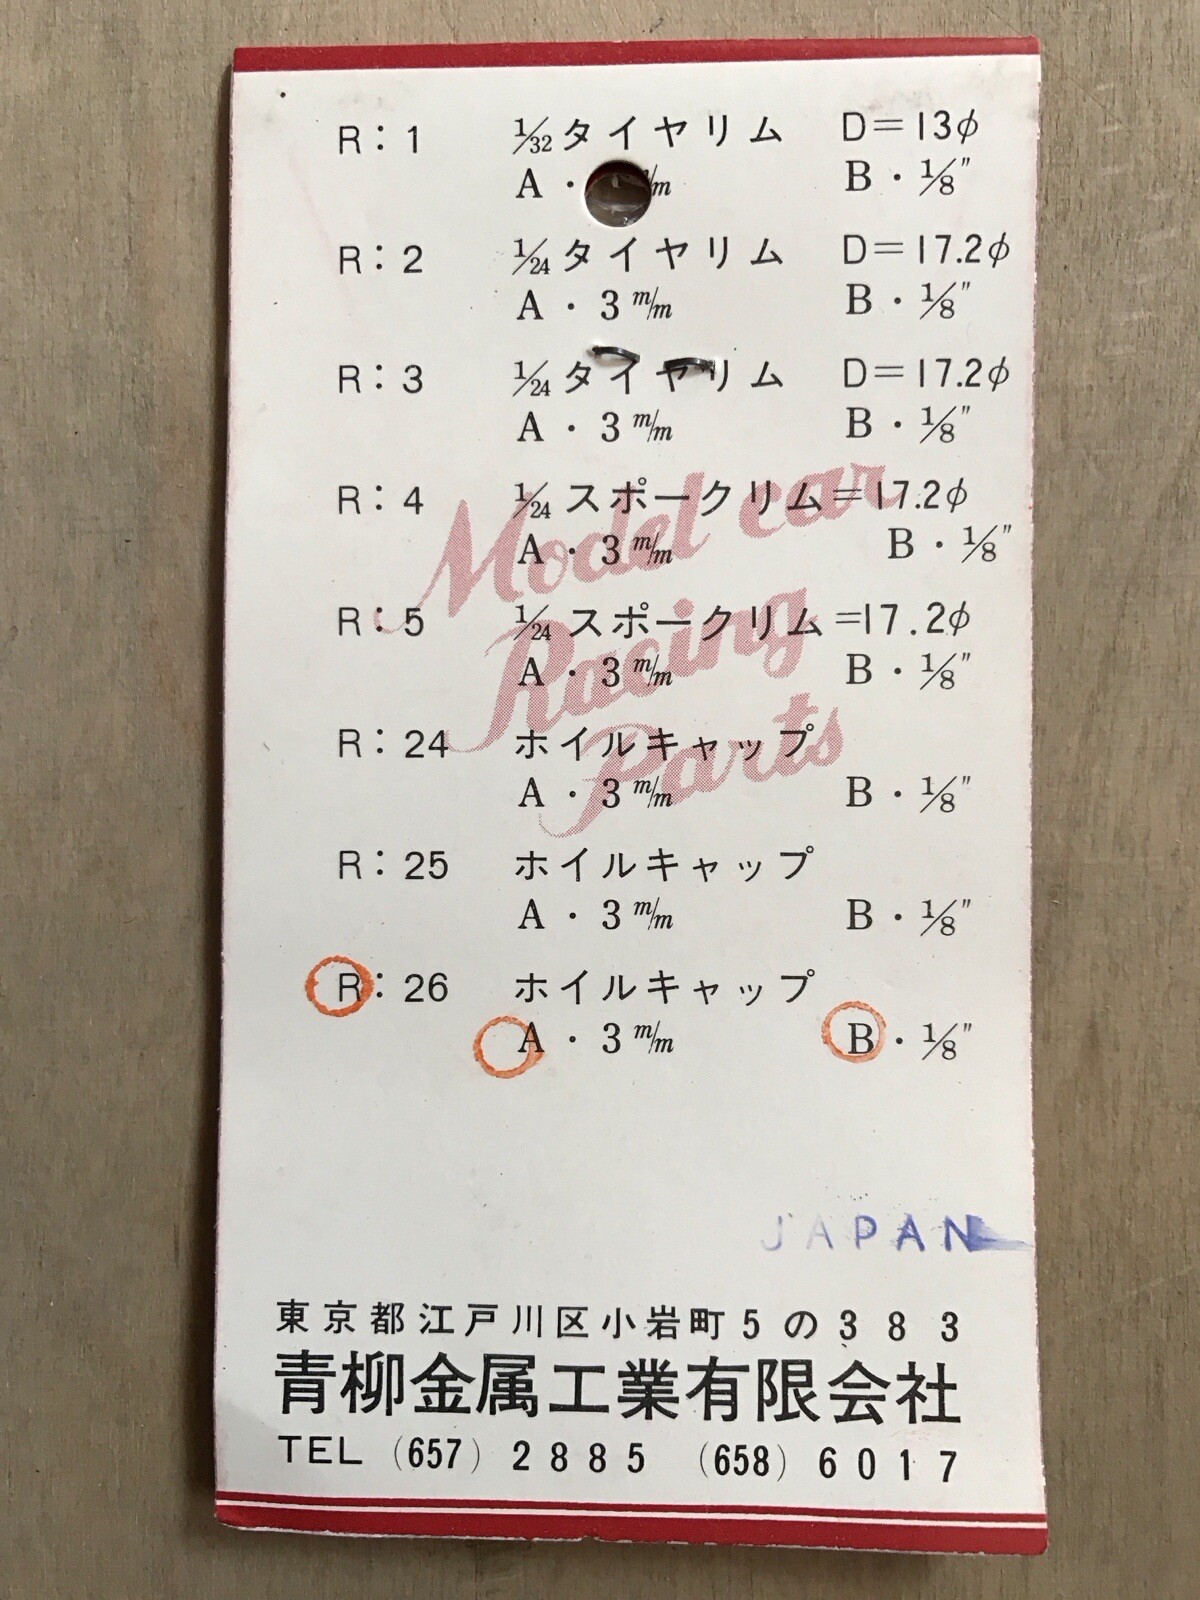 R:1 1/32タイヤリム D=13φ
A・ m/m B・1/8"
R:2 1/24タイヤリム D=17.2φ
A・3 m/m B・1/8"
R:3 1/24タイヤリム D=17.2φ
A・3 m/m B・1/8"
R:4 1/24スポークリム=17.2φ
A・3 m/m B・1/8"
R:5 1/24スポークリム=17.2φ
A・3 m/m B・1/8"
R:24 ホイルキャップ
A・3 m/m B・1/8"
R:25 ホイルキャップ
A・3 m/m B・1/8"
R:26 ホイルキャップ
A・3 m/m B・1/8"
Model car
Racing
Parts
JAPAN
東京都江戸川区小岩町5の383
青柳金属工業有限会社
TEL (657) 2885 (658) 6017